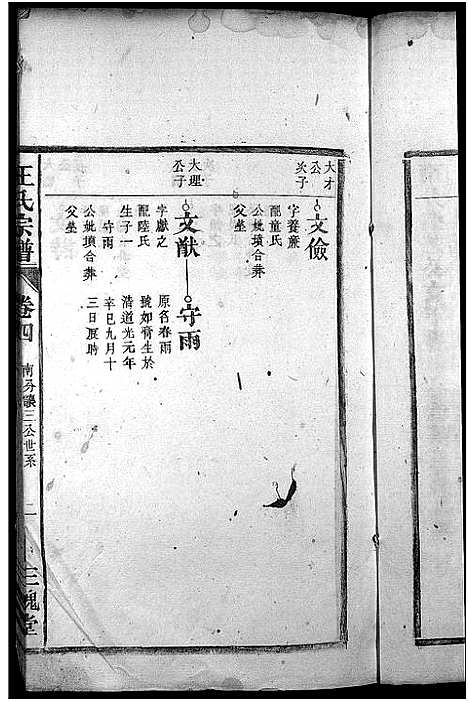 大才
公
次子
文儉
字養廉
配童氏
公妣墳合葬
父塋
大理
公子
文猷
守雨
字獻之
配陸氏
生子一
守雨
公妣墳合葬
父塋
原名春雨
號如膏生於
清道光元年
辛巳九月十
三日辰時
王氏宗譜
卷四
南分
三公世系
二
三槐堂